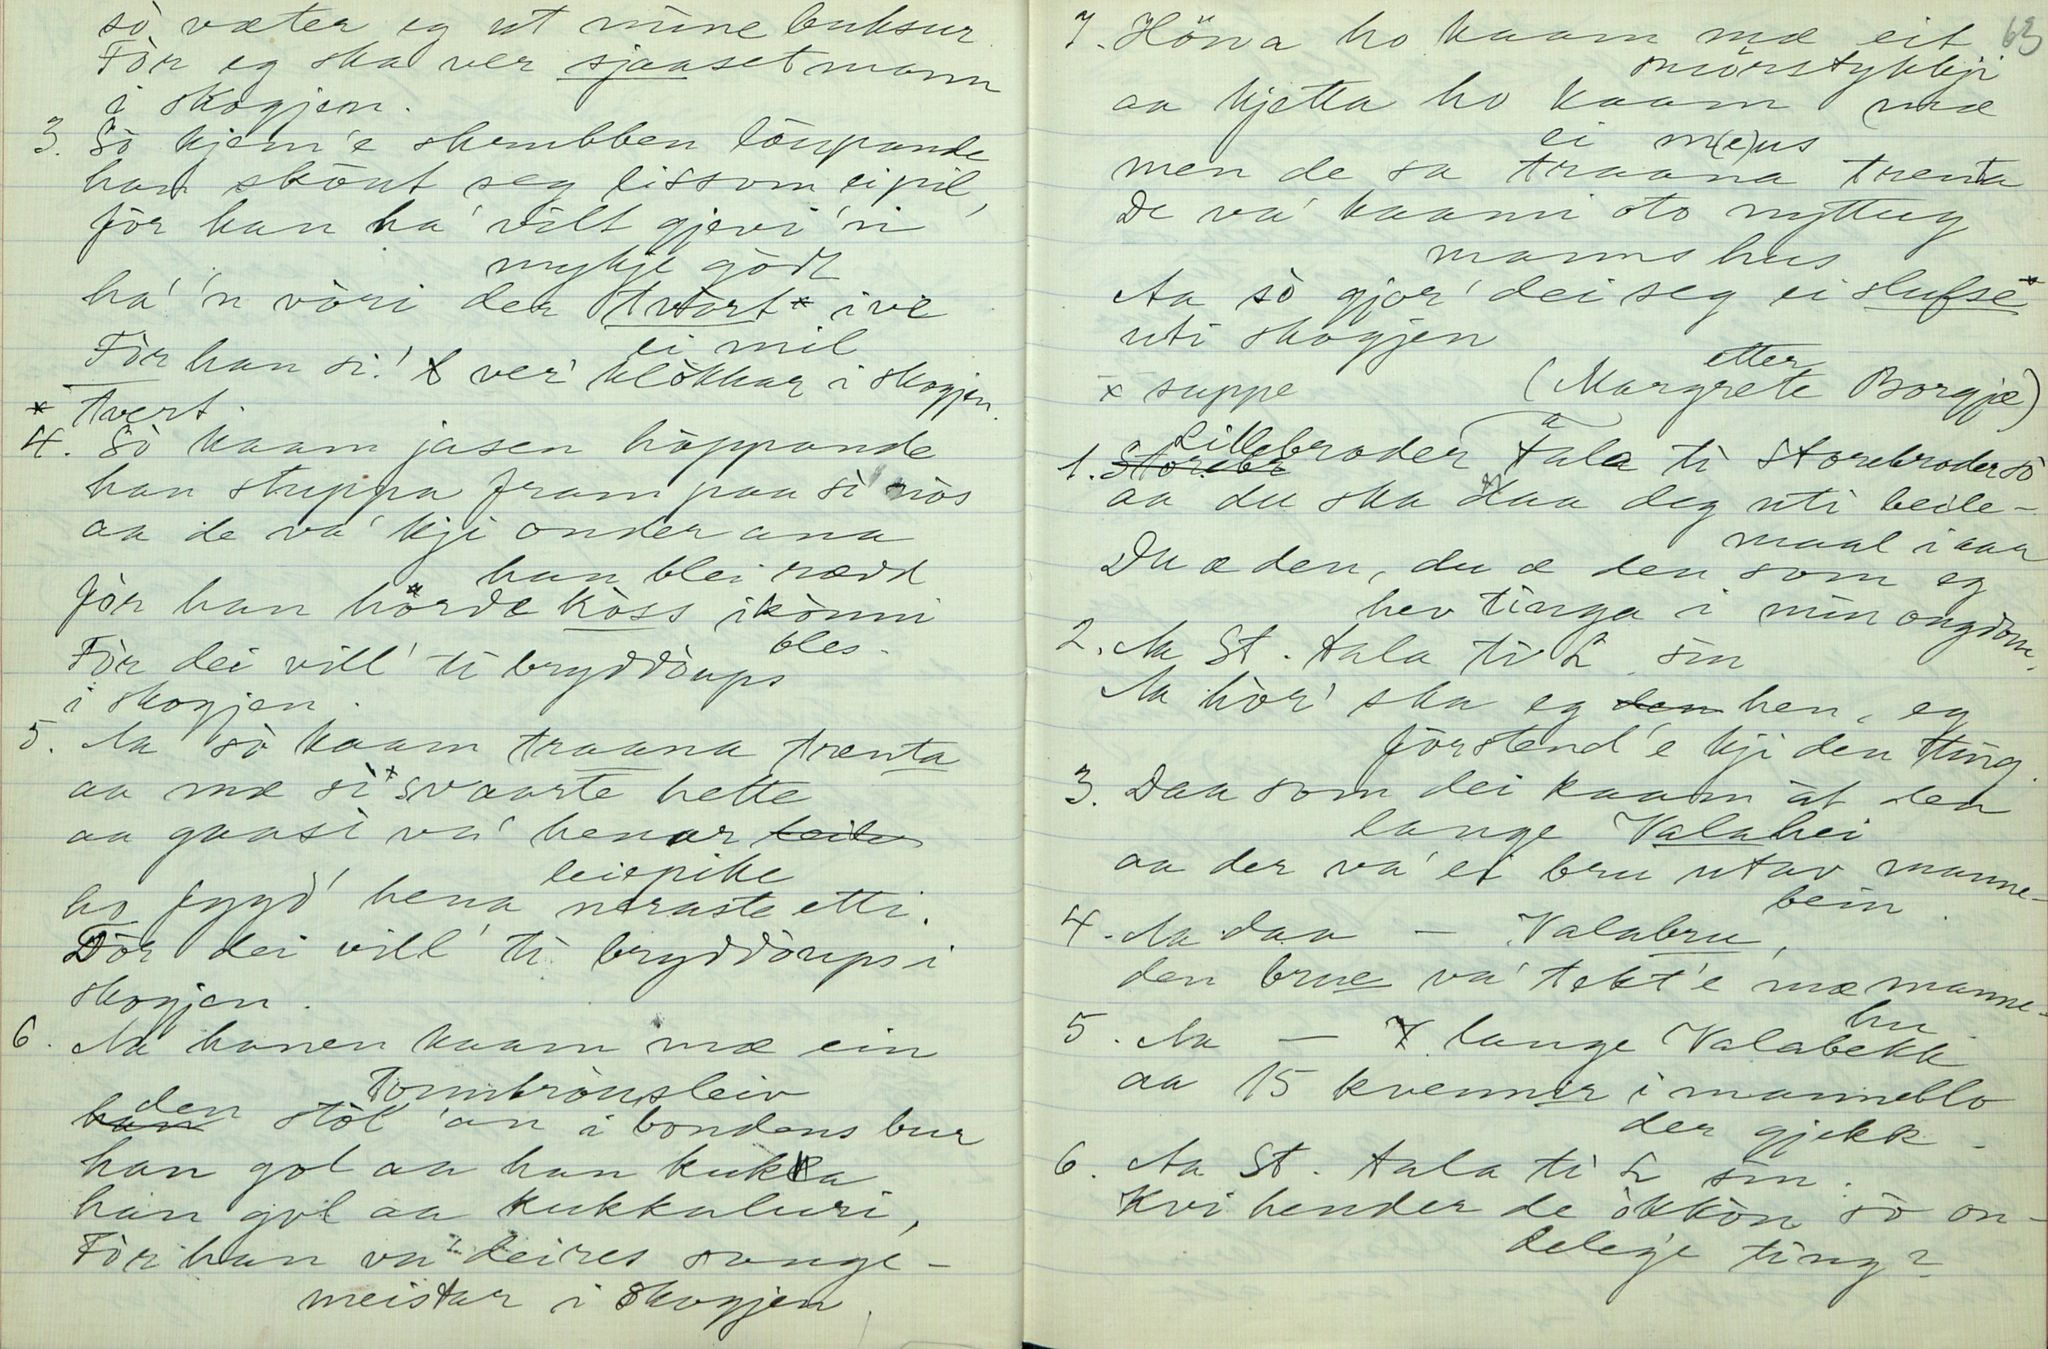 sò væter eg ut mine buksur
För eg ska ver sjaaset mann
i skogjen.
3. Sò kjem'e skrubben löupande
han sköut seg lissom ei pil,
för han ha' vilt gjevi 'ni
mykje gödt
ha' 'n vòri der tvört * ive
ei mil
För han si! ver' klökkar i skogjen.
* Tvert.
4. Sò kaam jasen höppande
han stuppa fram paa si nös
aa de va' kji onder ana
han blei rædd
för han hörde kòss ikònni
bles.
För dei vill' ti bryddöups
i skogjen.
5. Aa sò kaam traana trenta
aa mæ si svaarte hette
aa gaasi va' henar
leiepike
ho fygd' hena neraste etti.
För dei vill' ti bryddöups i
skogjen.
6. Aa hanen kaam mæ ein
tommbröusleiv
han den stòl 'an i bondens bur
han gol aa han kukka
han gol aa kukkaluri,
För han va deires sange-
meistar i skogjen.
63
7. Höna ho kaam mæ eit
smörstykkji
aa kjetta ho kaam mæ
ei m(e)us
men de sa traana trenta
De va' kaami sto nyttug
manns hus
Aa sò gjor' dei seg ei slufse*
uti skogjen
x suppe
(etter Margrete Borgje)
1. Storebr Lillebroder tala ti Storebroder sò
aa du ska daa deg uti beile-
maal i aar
Du æ den, du æ den som eg
hev tinga i min ongdom.
2. Aa St. tala ti L sin
Aa hòr' ska eg den hen, eg
förstend'e kji den ting.
3. Daa som dei kaam ut den
lange Valahei
aa der va' ei bru utav manne-
bein.
4. Aa daa — Valabru,
den brue va' tekt'e mæ manne-
hu
5. Aa — lange Valabekk
aa 15 kvenner i manneblo
der gjekk.
6. Aa St. tala ti L sin.
Kvi hender de òkkòn sò on-
delege ting?